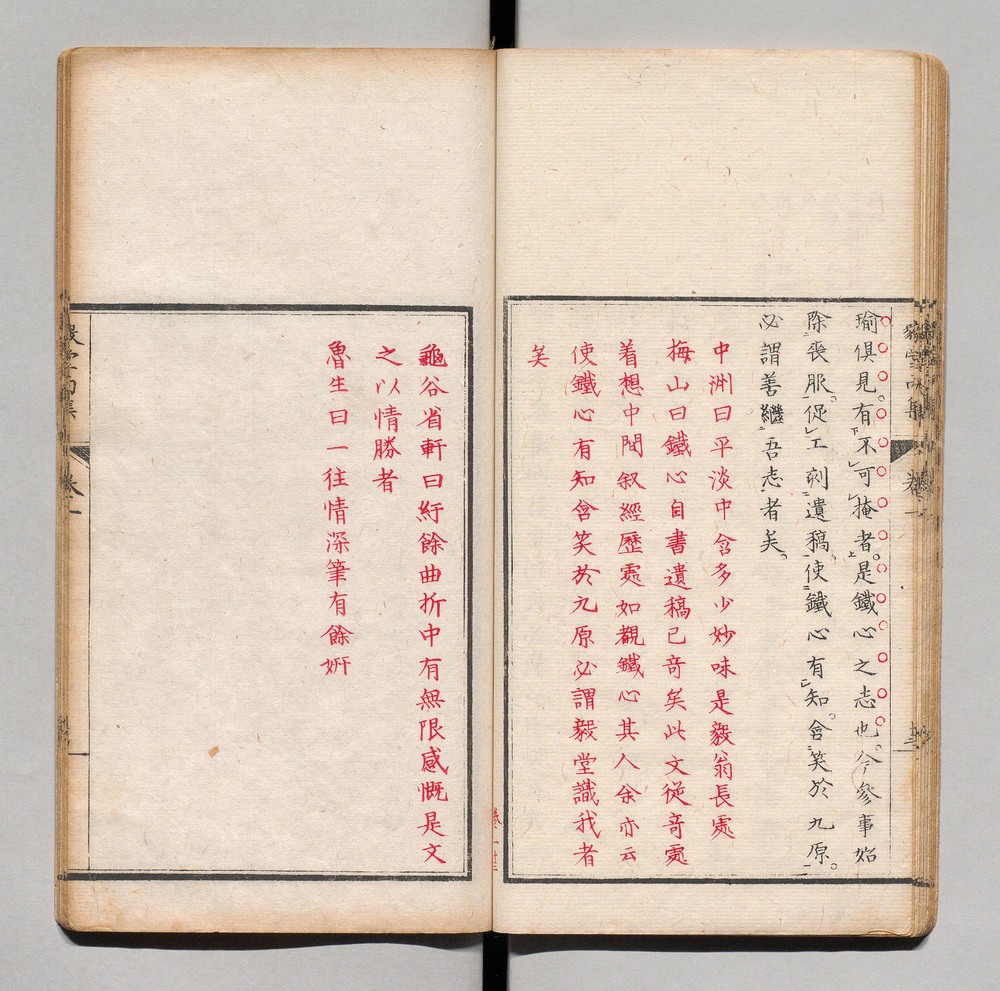 瑜俱見有不可掩者是鐵心之志也今參事始
除喪服促工刻遺稿使鐵心有知含笑於九原
必謂善繼吾志者矣
中洲曰平淡中含多少妙味是毅翁長處
梅山曰鐵心自書遺稿已奇矣此文從奇處
着想中間叙經歷處如觀鐵心其人余亦云
使鐵心有知含笑於九原必謂毅堂識我者
矣
龜谷省軒曰紆餘曲折中有無限感慨是文
之以情勝者
魯生曰一往情深筆有餘妍